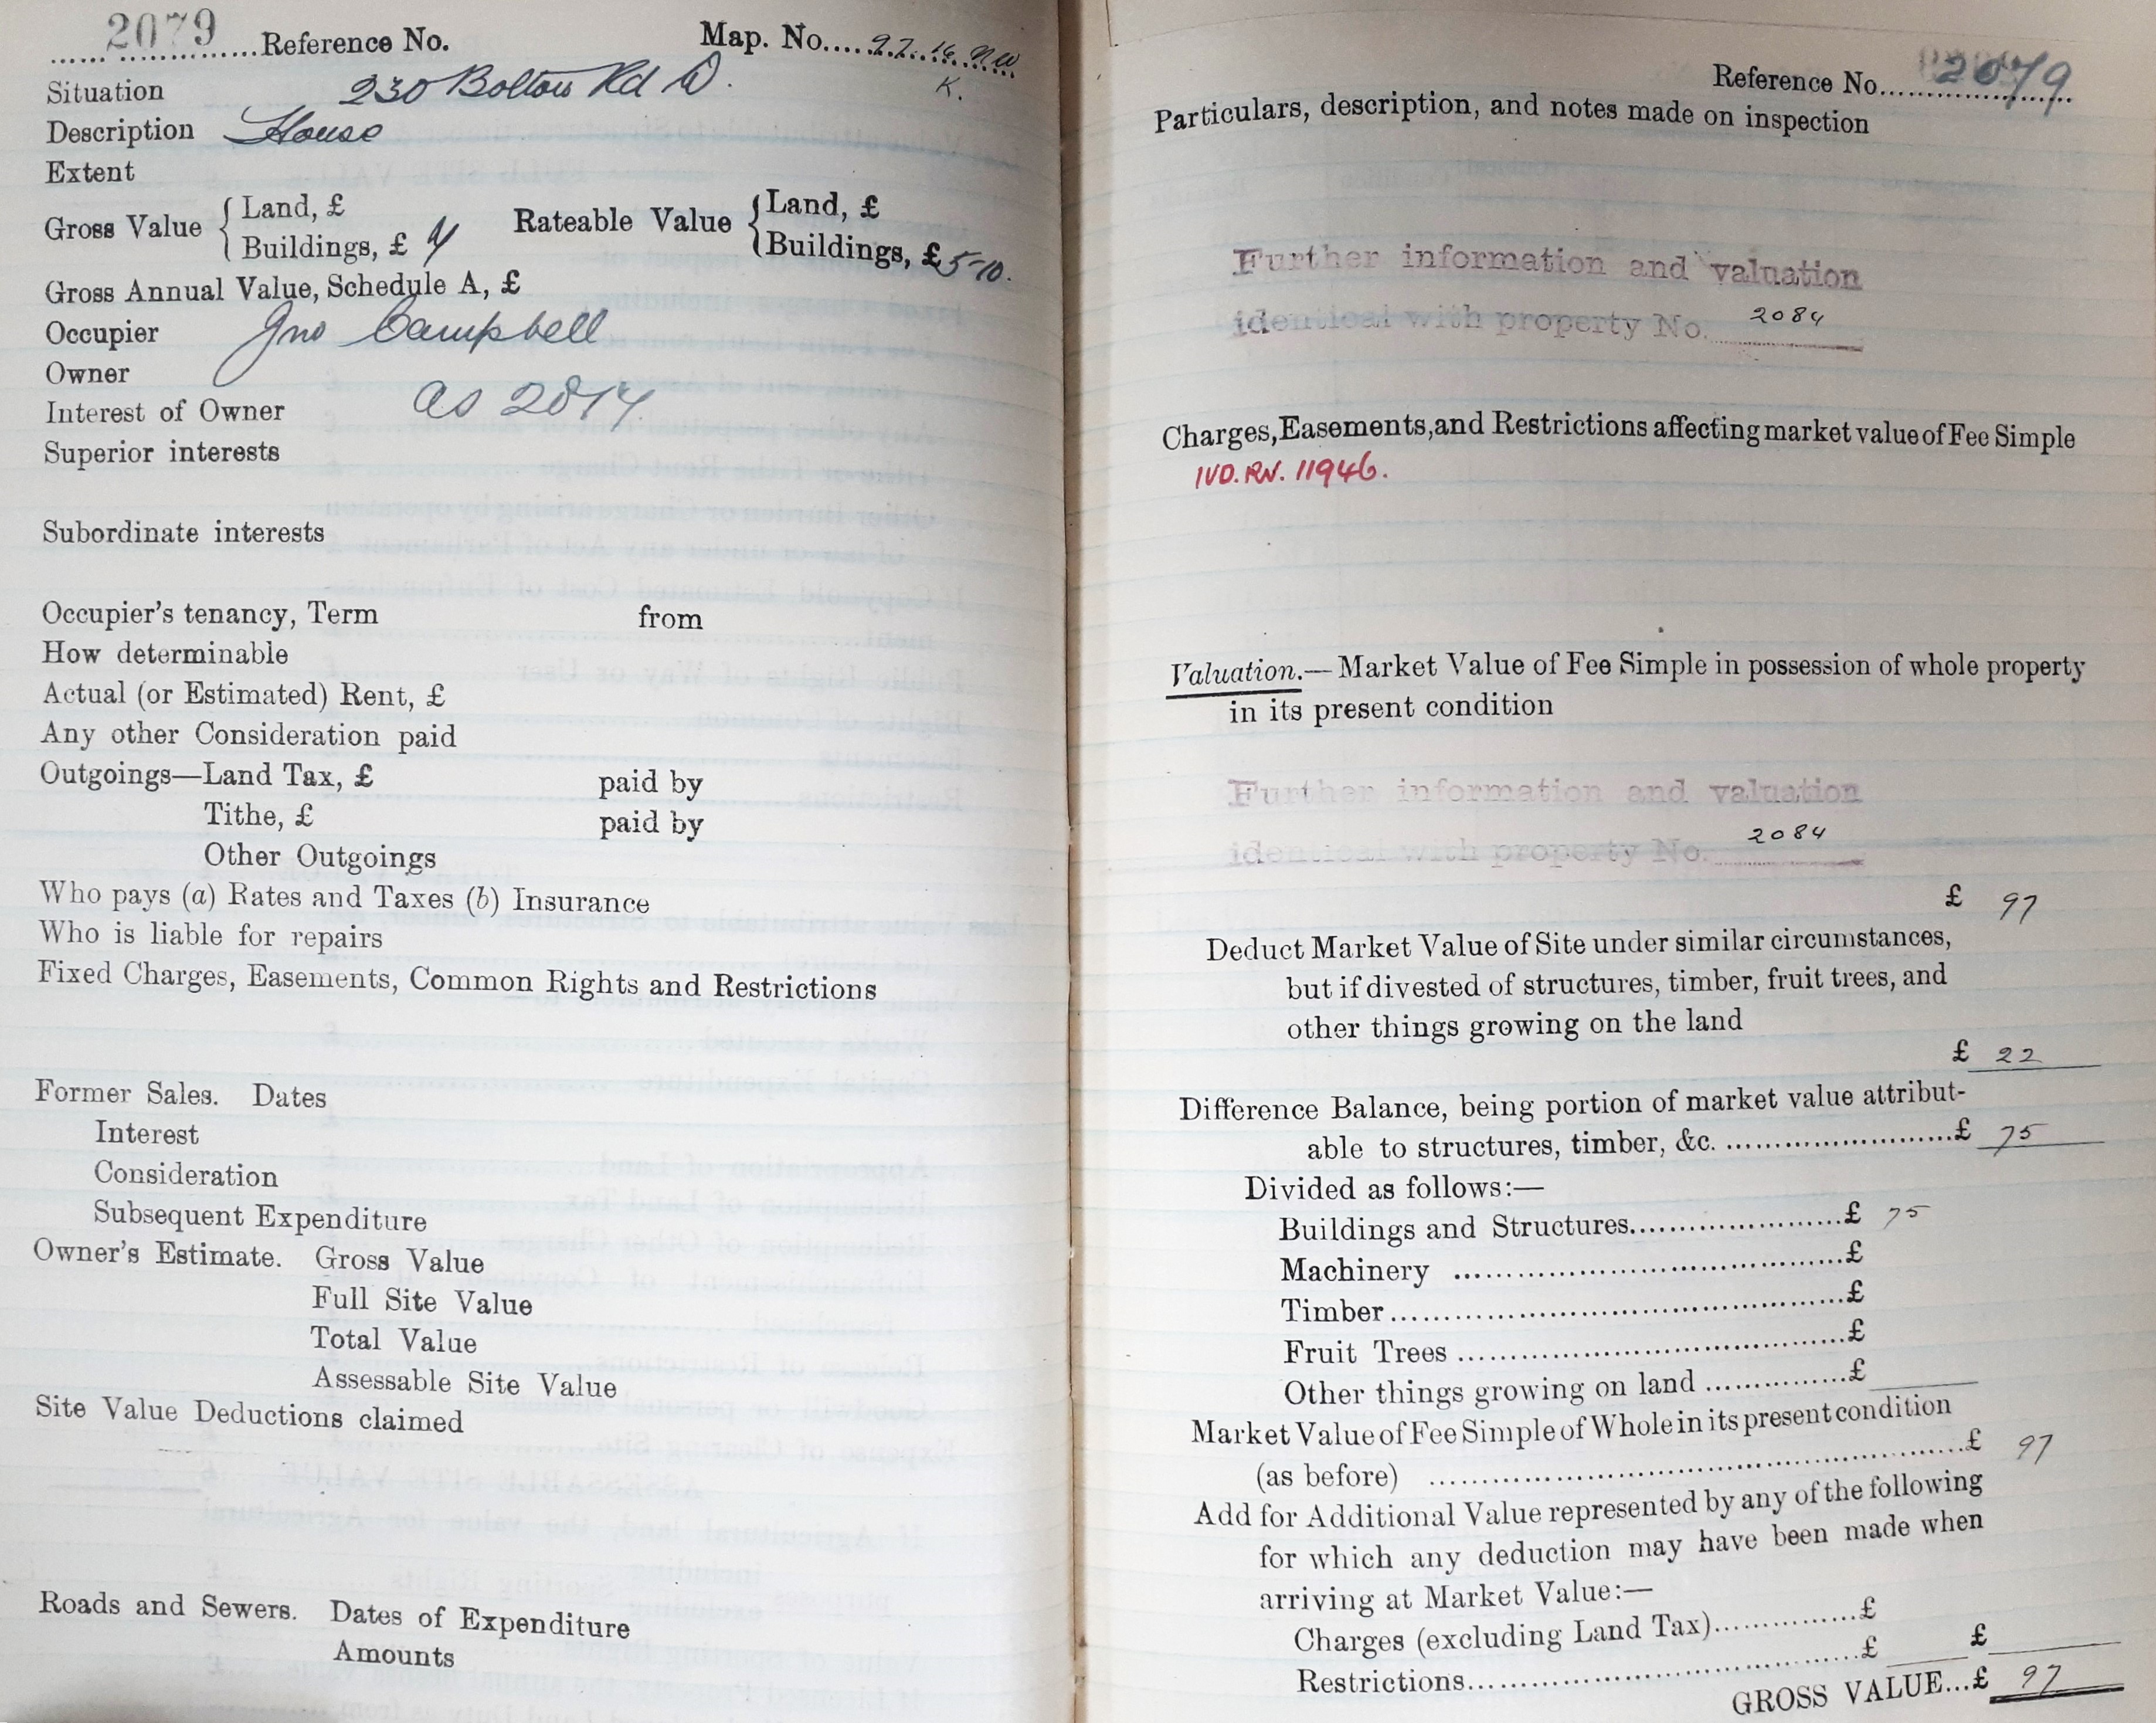 2079 Reference No. Map. No. 97. 14. NW
K.
Situation 230 Bolton Rd D.
Description House
Extent
Gross Value { Land, £ Rateable Value { Land, £
Buildings, £ Buildings, £ 5-10.
Gross Annual Value, Schedule A, £
Occupier Jno Campbell
Owner
Interest of Owner as 2074
Superior interests
Subordinate interests
Occupier's tenancy, Term from
How determinable
Actual (or Estimated) Rent, £
Any other Consideration paid
Outgoings—Land Tax, £ paid by
Tithe, £ paid by
Other Outgoings
Who pays (a) Rates and Taxes (b) Insurance
Who is liable for repairs
Fixed Charges, Easements, Common Rights and Restrictions
Former Sales. Dates
Interest
Consideration
Subsequent Expenditure
Owner's Estimate. Gross Value
Full Site Value
Total Value
Assessable Site Value
Site Value Deductions claimed
Roads and Sewers. Dates of Expenditure
Amounts
Reference No. 2079
Particulars, description, and notes made on inspection
Further information and valuation
identical with property No. 2084
Charges, Easements, and Restrictions affecting market value of Fee Simple
IVD. RN. 11946.
Valuation.—Market Value of Fee Simple in possession of whole property
in its present condition
Further information and valuation
identical with property No. 2084
£ 97
Deduct Market Value of Site under similar circumstances,
but if divested of structures, timber, fruit trees, and
other things growing on the land
£ 22
Difference Balance, being portion of market value attribut-
able to structures, timber, &c. £ 75
Divided as follows:—
Buildings and Structures £ 75
Machinery £
Timber £
Fruit Trees £
Other things growing on land £
Market Value of Fee Simple of Whole in its present condition
(as before) £ 97
Add for Additional Value represented by any of the following
for which any deduction may have been made when
arriving at Market Value:—
Charges (excluding Land Tax) £
Restrictions £ £
GROSS VALUE...£ 97